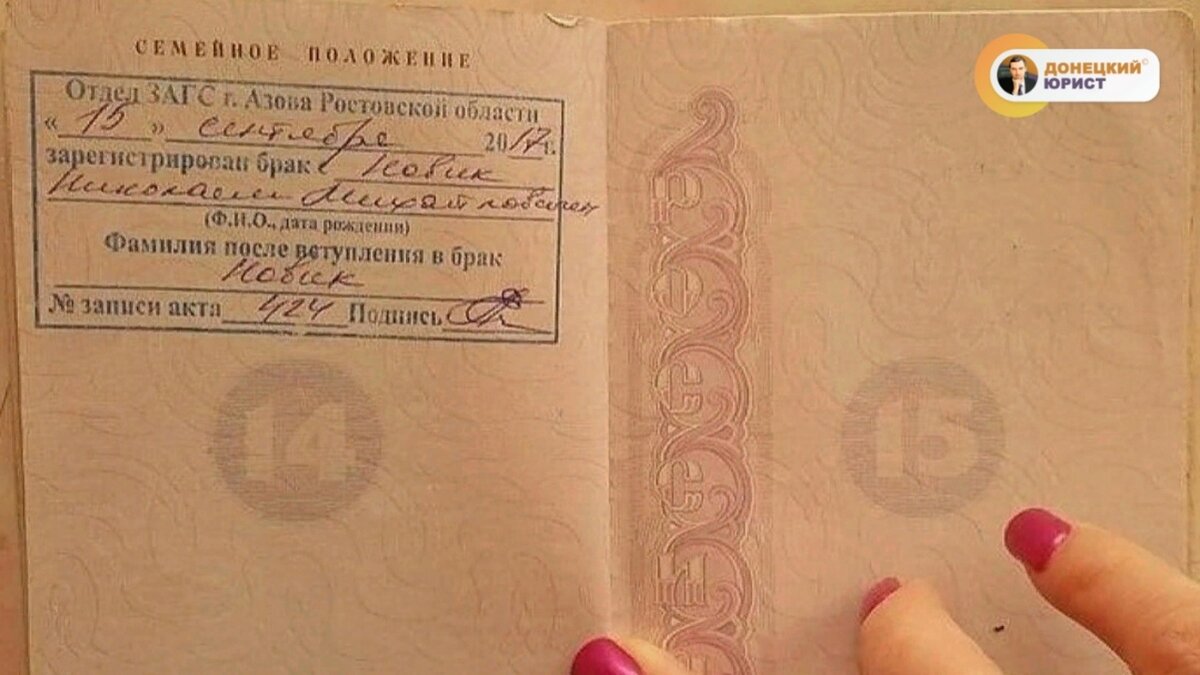 СЕМЕЙНОЕ ПОЛОЖЕНИЕ
Отдел ЗАГС г. Азова Ростовской области
« 15 » сентября 2017 г.
зарегистрирован брак с Новик
Николаем Михайловичем
(Ф.И.О., дата рождения)
Фамилия после вступления в брак
Новик
№ записи акта 424 Подпись
14
15
ДОНЕЦКИЙ©
ЮРИСТ